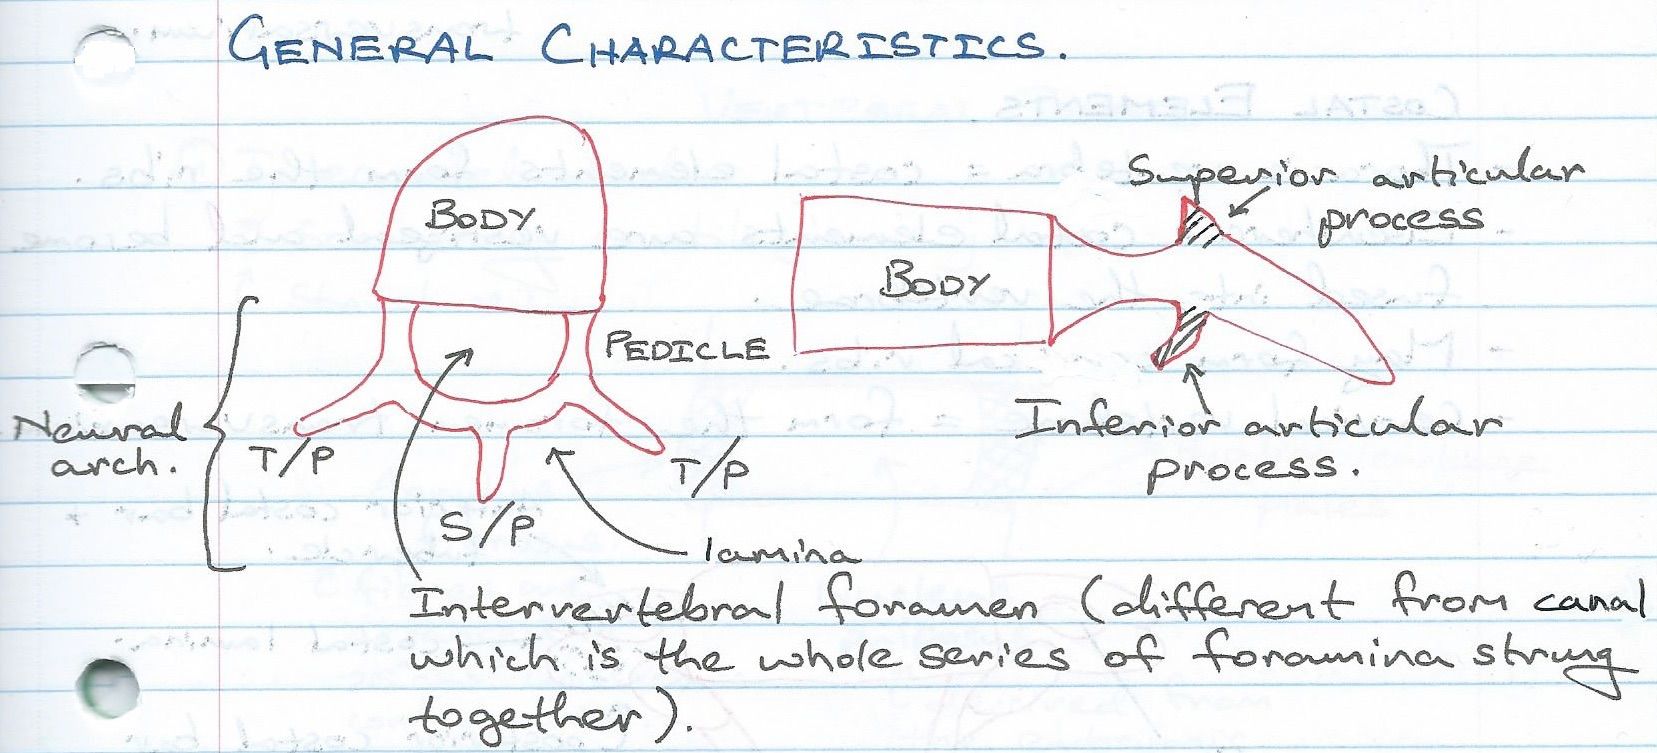 GENERAL CHARACTERISTICS.
BODY
Superior articular
process
BODY
PEDICLE
Neural
arch.
T/P
T/P
S/P
lamina
Inferior articular
process.
Intervertebral foramen (different from canal
which is the whole series of foramina strung
together).